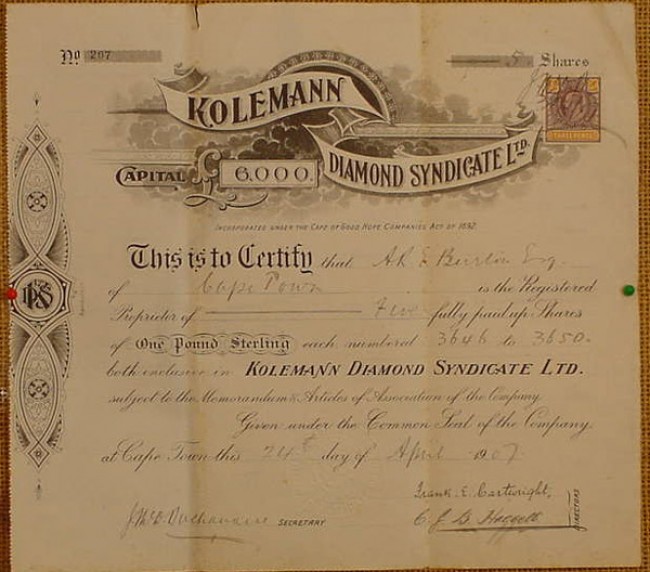 No 207 5 Shares
KOLEMANN
DIAMOND SYNDICATE LTD.
CAPITAL £ 6,000.
THREE PENCE
INCORPORATED UNDER THE CAPE OF GOOD HOPE COMPANIES ACT OF 1892.
This is to Certify that
of Cape Town is the Registered
Proprietor of Five fully paid up Shares
of One Pound Sterling each, numbered 3646 to 3650.
both inclusive in KOLEMANN DIAMOND SYNDICATE LTD.
subject to the Memorandum & Articles of Association of the Company.
Given under the Common Seal of the Company,
at Cape Town this 24th day of April 1907
Frank E. Cartwright,
SECRETARY
DIRECTORS